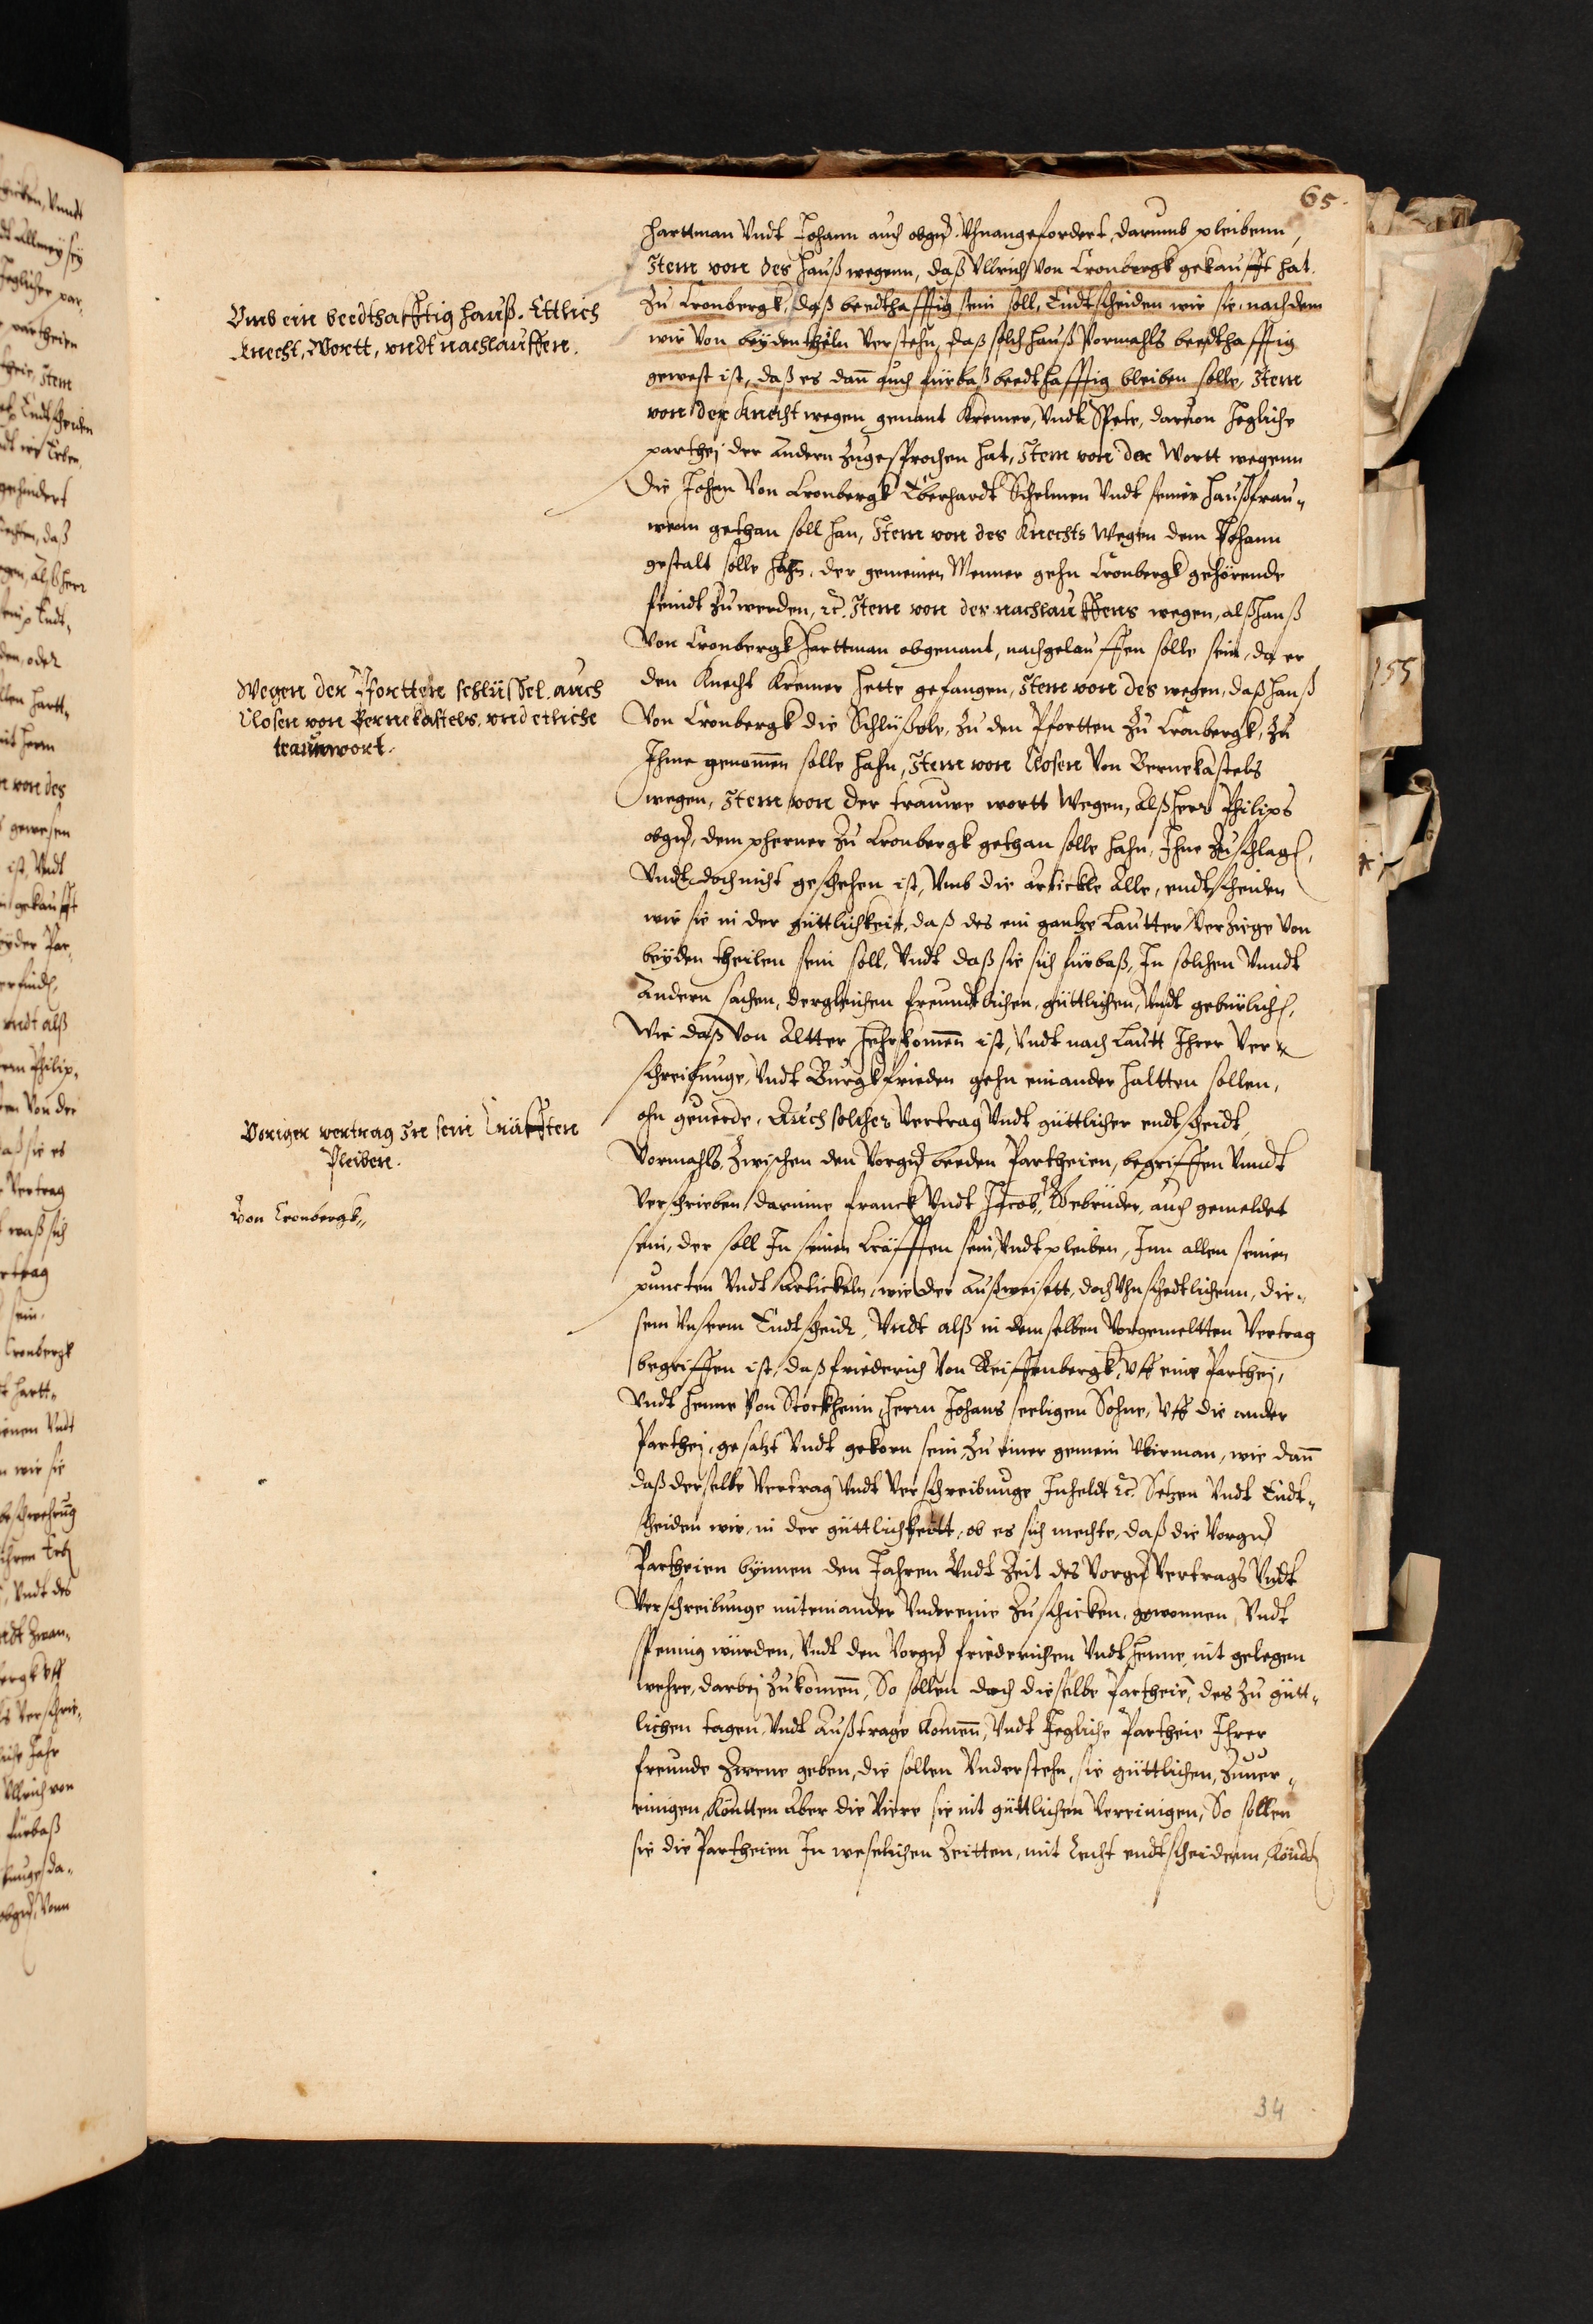 65.
harttman Undt Johann auch obgnt. Uhnangefordert, darumb pleibenn,
Item von des Hauß wegenn, daß Ullrich Von Cronbergk gekaufft hat.
Zu Cronbergk, daß beedthafftig sein soll, Endtscheiden wir sie, nach dem
wir Von beyden theiln Verstehn, daß solch Hauß Vormahls beedthafftig
gewest ist, daß es dann auch fürbaß beedthafftig bleiben solle, Item
von der Knecht wegen genant Kremer, Undt Spete, darvon Jegliche
parthej der Andern Zugesprochen hat, Item von der Wortt wegenn
die Johan Von Cronbergk Eberhardt Schelmen Undt seiner Haußfrau„
wenn gethan soll han, Item von des Knechts Wegen dem Johann
gestalt solle hahn, der gemeinen Menner gehn Cronbergk gehörende
feindt Zu werden, ꝛc. Item von des nachlauffens wegen, alß Hanß
Von Cronbergk Harttman obgenant, nachgelauffen solle sein, da er
den Knecht Kremer hette gefangen, Item von des wegen, daß Hanß
Von Cronbergk die Schlüßele, Zu den Pfortten Zu Cronbergk, Zu
Ihme genommen solle hahn, Item von Closen Von Bernekastels
wegen, Item von der trauwe wortt Wegen, Alß Herr Philips
obgnt, dem pherner Zu Cronbergk gethan solle hahn, Ihne Zu schlagen,
Undt doch nicht geschehen ist, Umb die Artickle Alle, endtscheiden
wir sie in der güttlichkeit, daß des ein gantze Lautter Verziege Von
beyden theilen sein soll, Undt daß sie sich fürbaß, In solchen Unndt
Andern sachen, dergleichen freundtlichen, güttlichen, Undt gebürlichen,
Wie daß Von Altter Hehrkommen ist, Undt nach Lautt Ihrer Ver„
schreibunge, Undt Burgkfrieden gehn einander haltten sollen,
ohn geuerde. Auch solcher Vertrag Undt güttlicher endtscheidt,
Vormahls, Zwischen den Vorgnt beeden Partheien, begriffen Unndt
Verschrieben, darinne Franck Undt Jacob, Gebrüder, auch gemeldet
sein, der soll In seinen Kräfften sein, Undt pleiben, Inn allen seinen
puncten Undt Artickeln, wie der Außweisett, doch Uhnschedtlichenn, die„
sem Unserm Endtscheidt, Undt alß in demselben Vorgemeltten Vertrag
begriffen ist, daß Friederich Von Reiffenbergk, Uff eine Parthej,
Undt Henne Von Stockheim, Herrn Johans seeligen Sohne, Uff die ander
Parthej, gesatzt Undt gekorn sein, Zu einer gemein Ubirman, wie dann
daß derselbe Vertrag Undt Verschreibunge Inheldt ꝛc. Setzen Undt Endt„
scheiden wir, in der güttlichkeitt, ob es sich mechte, daß die Vorgnt
Partheien bynnen den Jahren Undt Zeit des Vorgnt Vertrags Undt
Verschreibunge miteinander Underenie Zu schicken, gewonnen, Undt
spennig würden, Undt den Vorgnt Friederichen Undt Henne, nit gelegen
wehre, darbej Zu kommen, So sollen doch dieselbe Partheie, des Zu gütt„
lichen tagen, Undt Außtrage Kommen, Undt Jegliche Partheie Ihrer
freunde Zwene geben, die sollen Understehn, sie güttlichen, Zuuer„
einigen, Kontten Aber die Viere sie nit güttlichen Vereinigen, So sollen
sie die Partheien In weselichen Zeitten, mit Recht endtscheidenn,
Umb ein beedthafftig hauß. Ettlich
Knecht, Wortt, vndt nachlauffen.
Wegen der Pfortten schlüssel, auch
Closen von Bernekastels, vnd etliche
trauwwort.
Voriger vertrag In sein Kräfften
Pleiben.
Von Cronbergk„
155
34